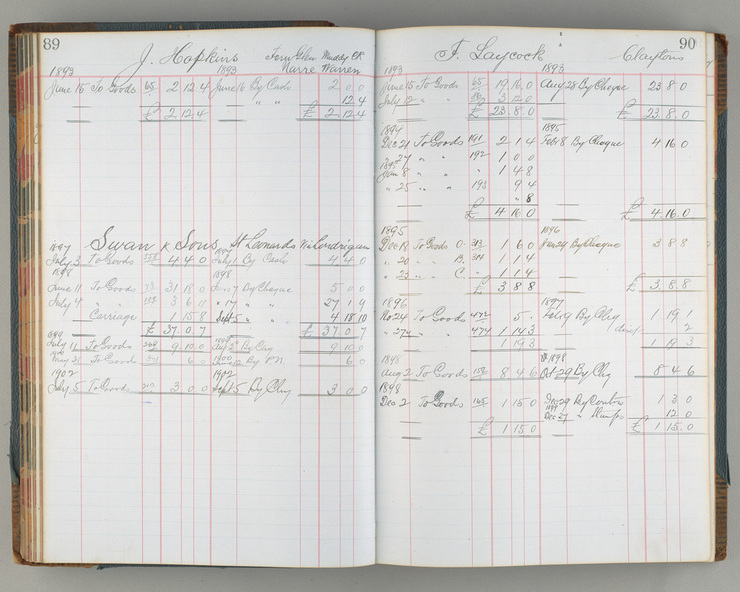 89
J. Hopkins Fern Glen Muddy Ck
Narre Warren
1893 1893
June 15 To Goods 65 2 12 4 June 16 By Cash 2 0 0
" " 12 4
£ 2 12 4 £ 2 12 4
Swan & Sons St Leonards
1897
July 3 To Goods 4 4 0 July 1 By Cash 4 4 0
1898 1898
June 11 To Goods 31 18 0 7 By Cheque 5 0 0
July 4 " " 3 6 11 " 17 " " 27 1 9
Carriage 1 15 8 Sept 5 " " 4 18 10
£ 37 0 7 £ 37 0 7
1899
July 11 To Goods 9 10 0 By Chq 9 10 0
1900 1900
May 25 To Goods 6 0 June 12 By P.N. 6 0
1902 1902
July 5 To Goods 3 0 0 Sept 5 By Chq 3 0 0
90
F. Laycock Claytons
1893 1893
June 15 To Goods 65 19 16 0 Aug 28 By Cheque 23 8 0
July 12 " " 3 12 0
£ 23 8 0 £ 23 8 0
1894 1895
Dec 21 To Goods 191 2 1 4 Feb 8 By Cheque 4 16 0
" 27 " " 192 1 0 0
1895
Jan 8 " " " 1 4 8
" 25 " " 193 9 4
" 8
£ 4 16 0 £ 4 16 0
1895 1896
Dec 18 To Goods O. 313 1 6 0 Jan 24 By Cheque 3 8 8
" 20 " B. 314 1 1 4
" 23 " C. " 1 1 4
£ 3 8 8 £ 3 8 8
1896 1897
No 24 To Goods 472 5 - Feb 9 By Chq 1 19 1
" 27 " " 474 1 14 3 disct 2
1 19 3 1 19 3
1898 1898
Aug 2 To Goods 8 4 6 Oct 29 By Chq 8 4 6
1898
Dec 2 To Goods 165 1 15 0 Dec 29 By Contra 1 3 0
1899
Dec 27 " Stamps 12 0
£ 1 15 0 £ 1 15 0